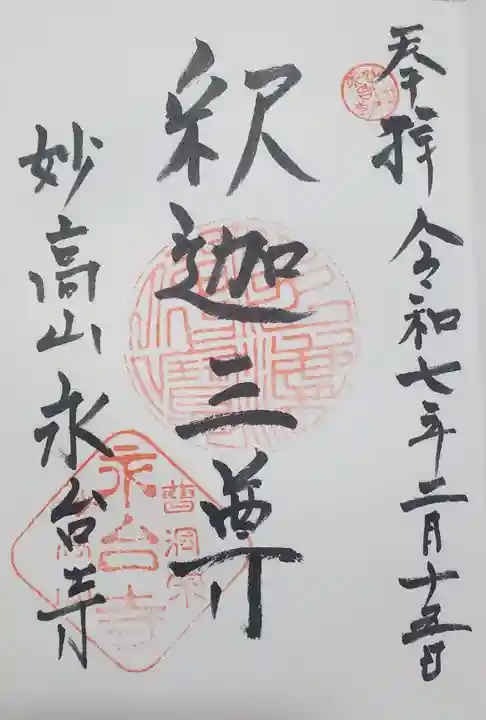 奉拝 令和七年二月十五日
釈迦三尊
妙高山永台寺
曹洞宗
永台寺